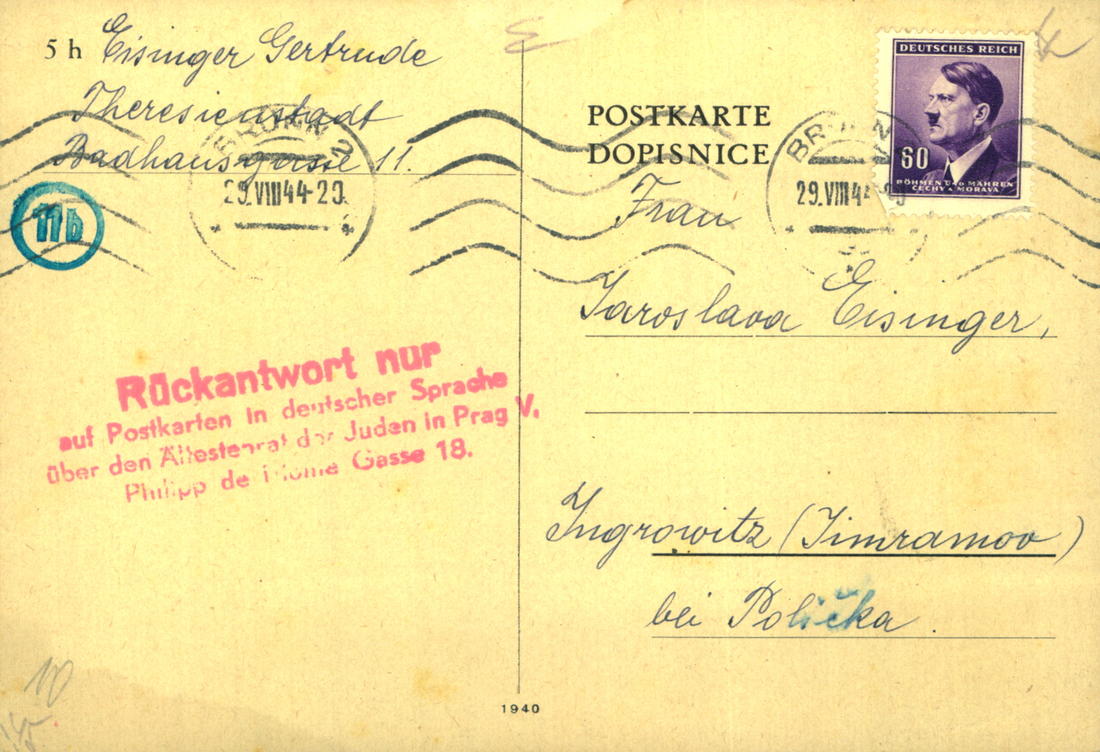 5 h Eisinger Gertrude
Theresienstadt
Badhausgasse 11.
BRÜNN 2
29.VIII 44-20.
11b
Rückantwort nur
auf Postkarten in deutscher Sprache
über den Ältestenrat der Juden in Prag V.
Philipp de Monte Gasse 18.
DEUTSCHES REICH
60
BÖHMEN UND MÄHREN
ČECHY A MORAVA
POSTKARTE
DOPISNICE
BRÜNN
29.VIII 44
Frau
Jaroslava Eisinger,
Ingrowitz (Jimramov)
bei Polička
1940